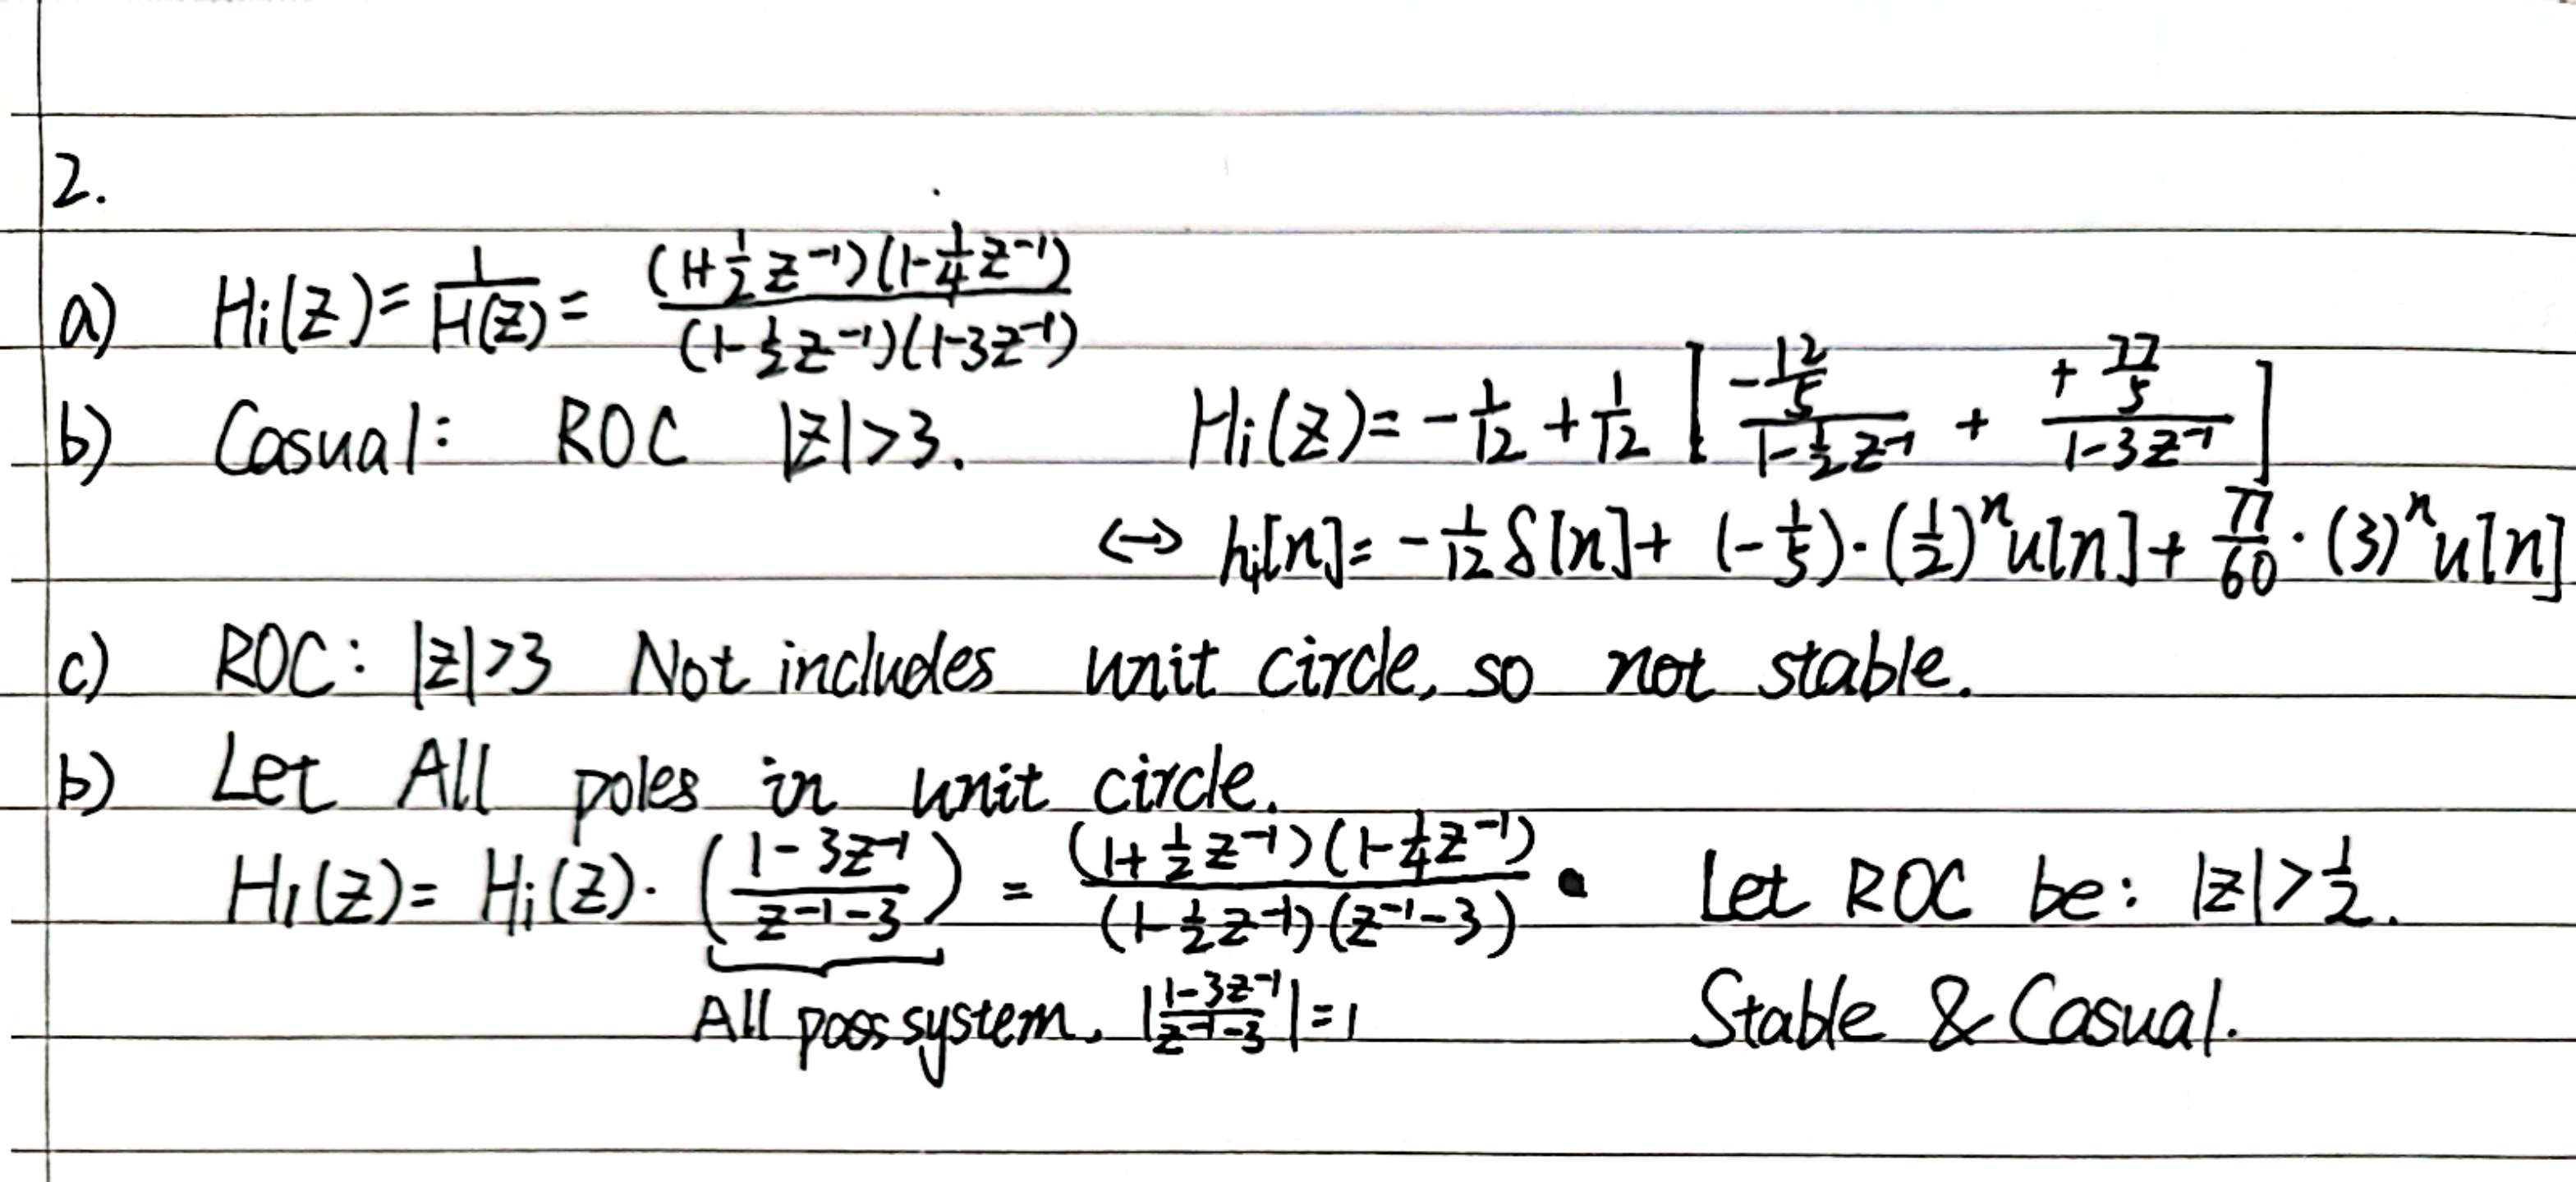 2.
a) Hi(z) = 1/H(z) = (1+1/2 z⁻¹)(1-1/4 z⁻¹) / (1-1/2 z⁻¹)(1-3z⁻¹)
b) Casual: ROC |z|>3. Hi(z) = -1/12 + 1/12 [ (-12/5)/(1-1/2 z⁻¹) + (+77/5)/(1-3z⁻¹) ]
↔ hi[n] = -1/12 δ[n] + (-1/5)·(1/2)ⁿu[n] + 77/60·(3)ⁿu[n]
c) ROC: |z|>3 Not includes unit circle, so not stable.
b) Let All poles in unit circle.
H₁(z) = Hi(z)·((1-3z⁻¹)/(z⁻¹-3)) = (1+1/2 z⁻¹)(1-1/4 z⁻¹) / (1-1/2 z⁻¹)(z⁻¹-3) Let ROC be: |z|>1/2.
All pass system. |(1-3z⁻¹)/(z⁻¹-3)| = 1 Stable & Casual.